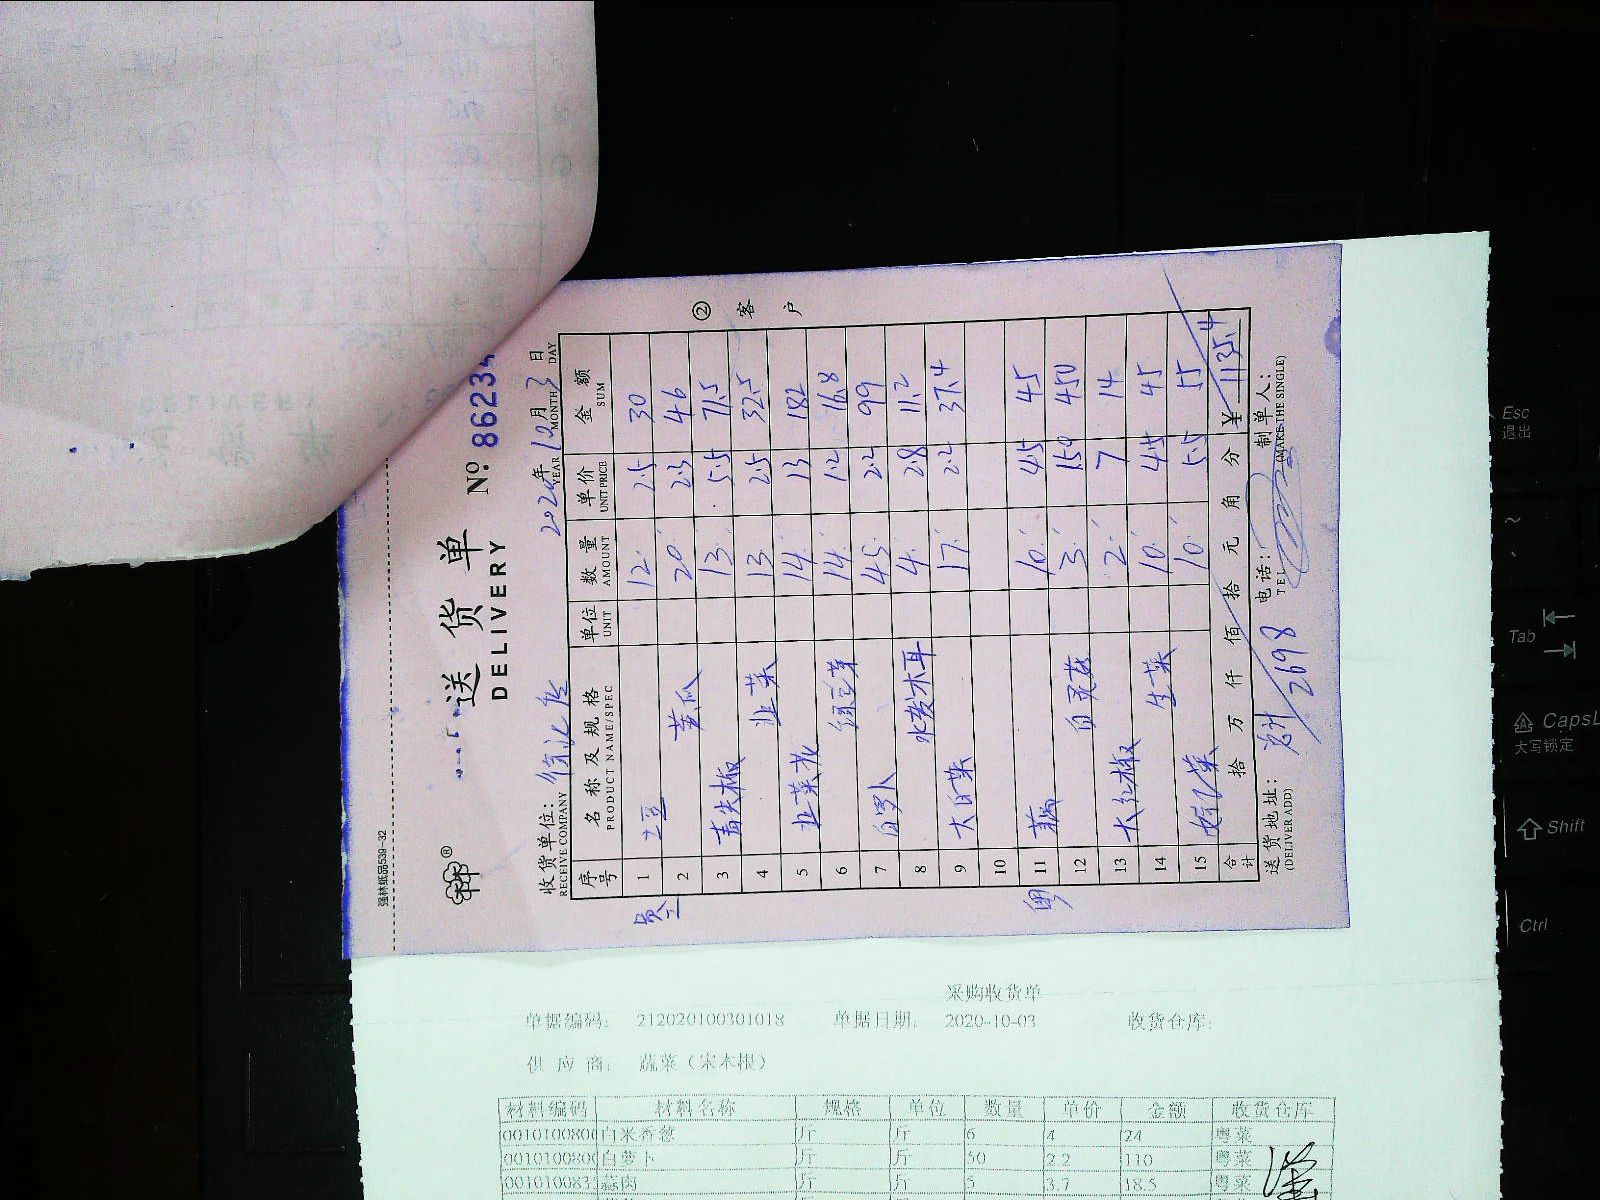 强林纸品539-32
送货单
DELIVERY
No 86234
收货单位:
RECEIVE COMPANY
2020年10月3日
YEAR MONTH DAY
② 客户
序号 名称及规格 单位 数量 单价 金额
PRODUCT NAME/SPEC UNIT AMOUNT UNIT PRICE SUM
1 土豆 12 2.5 30
2 黄瓜 20 2.3 46
3 青尖椒 13 5.5 71.5
4 韭菜 13 2.5 32.5
5 韭菜花 14 13 182
6 绿豆芽 14 1.2 16.8
7 白萝卜 45 2.2 99
8 水发木耳 4 2.8 11.2
9 大白菜 17 2.2 37.4
10
粤
11 藕 10 4.5 45
12 白灵菇 3 150 450
13 大红椒 2 7 14
14 生菜 10 4.5 45
15 娃娃菜 10 5.5 55
合计 拾 万 仟 佰 拾 元 角 分 ¥ 1135.4
送货地址:
(DELIVER ADD)
2698
电话:
TEL
制单人:
(MAKE THE SINGLE)
采购收货单
单据编码: 212020100301018 单据日期: 2020-10-03 收货仓库:
供应商: 蔬菜(宋本根)
材料编码 材料名称 规格 单位 数量 单价 金额 收货仓库
0010100800 白米香葱 斤 斤 6 4 24 粤菜
0010100800 白萝卜 斤 斤 50 2.2 110 粤菜
001010083 蒜肉 斤 斤 5 3.7 18.5 粤菜
Esc
退出
~
Tab
CapsL
大写锁定
Shift
Ctrl